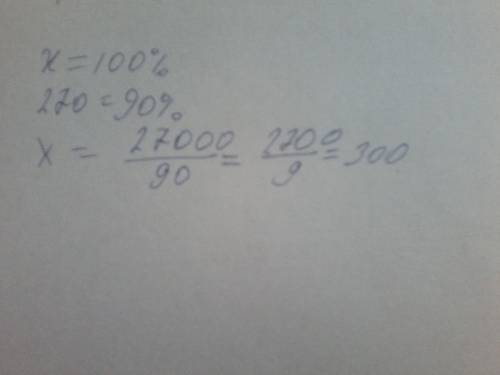 x = 100%
270 = 90%
x = 27000/90 = 2700/9 = 300